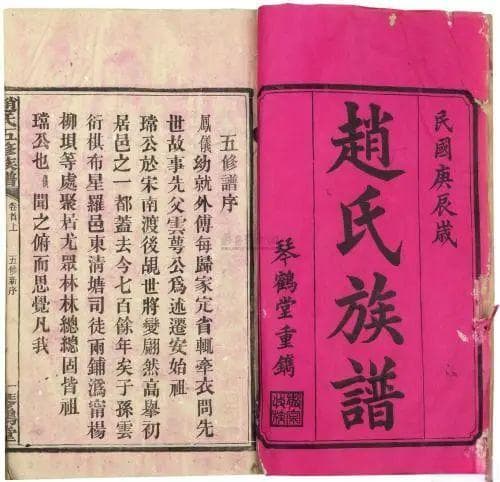 民國庚辰歲
趙氏族譜
琴鶴堂重鐫
五修譜序
鳳儀幼就外傅每歸家定省輒牽衣問先
世故事先父雲萼公爲述遷安始祖
璫公於宋南渡後覘世將變翩然高舉初
居邑之一都蓋去今七百餘年矣子孫雲
衍棋布星羅邑東清塘司徒兩鋪潙甯楊
柳埧等處聚居尤眾林林總總固皆祖
璫公也儀聞之俯而思覺凡我
趙氏五修族譜
卷首上
五修新序
一
琴鶴堂